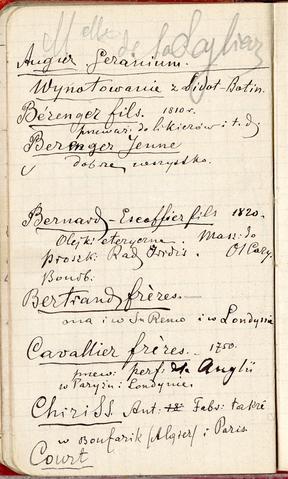 Mlle de la
Augier Geranium.
Wynotowanie z Didot-Botin.
Bérenger fils. 1810 r.
przeważ. do likierów i t.d.
Berenger Jenne
dobre wszystko.
Bernard-Escoffier fils 1820.
Olejki eteryczne. Masz. do
proszk. Rad. Ol Cary.
Bonb.
Bertrand frères.
ona i w Sn Remo i w Londynie
Cavallier frères. 1750.
przew. perf. Anglii
w Paryżu i Londynie.
ChiriSS Ant. Fabr. także
w Boufarik (Algier) i Paris
Court